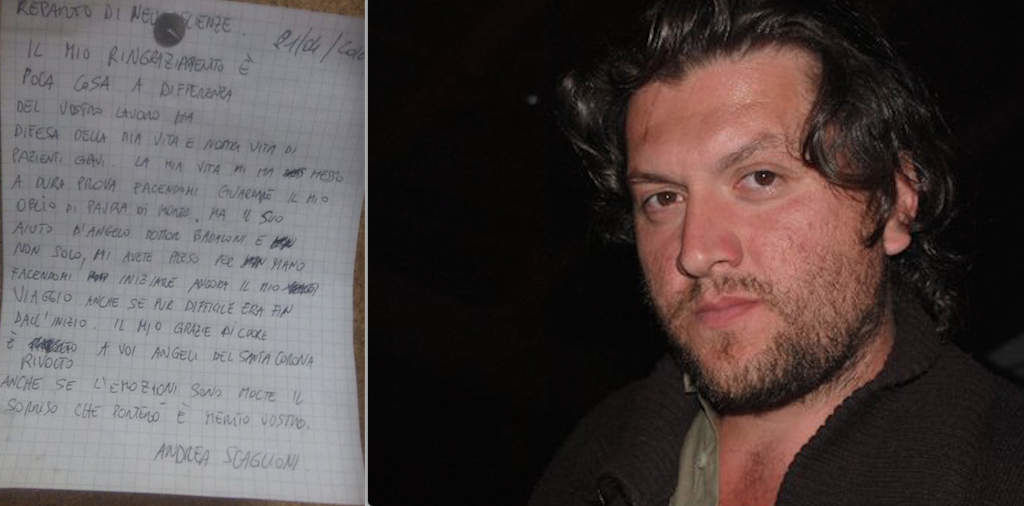 REPARTO DI
21/04/
IL MIO RINGRAZIAMENTO È
POCA COSA A DIFFERENZA
DEL VOSTRO LAVORO
DIFESA DELLA MIA VITA E NOSTRA VITA DI
PAZIENTI GRAVI. LA MIA VITA MI HA MESSO
A DURA PROVA FACENDOMI GUARDARE IL MIO
OBLIO DI PAURA DI MORTE, MA IL SUO
AIUTO D'ANGELO DOTTOR BADALONI E
NON SOLO, MI AVETE PRESO PER MANO
FACENDOMI INIZIARE ANCORA IL MIO
VIAGGIO ANCHE SE PUR DIFFICILE ERA FIN
DALL'INIZIO. IL MIO GRAZIE DI CUORE
È A VOI ANGELI DEL SANTA CORONA
RIVOLTO
ANCHE SE L'EMOZIONI SONO MOLTE IL
SORRISO CHE PORTERÒ È MERITO VOSTRO.
ANDREA SCAGLIONI